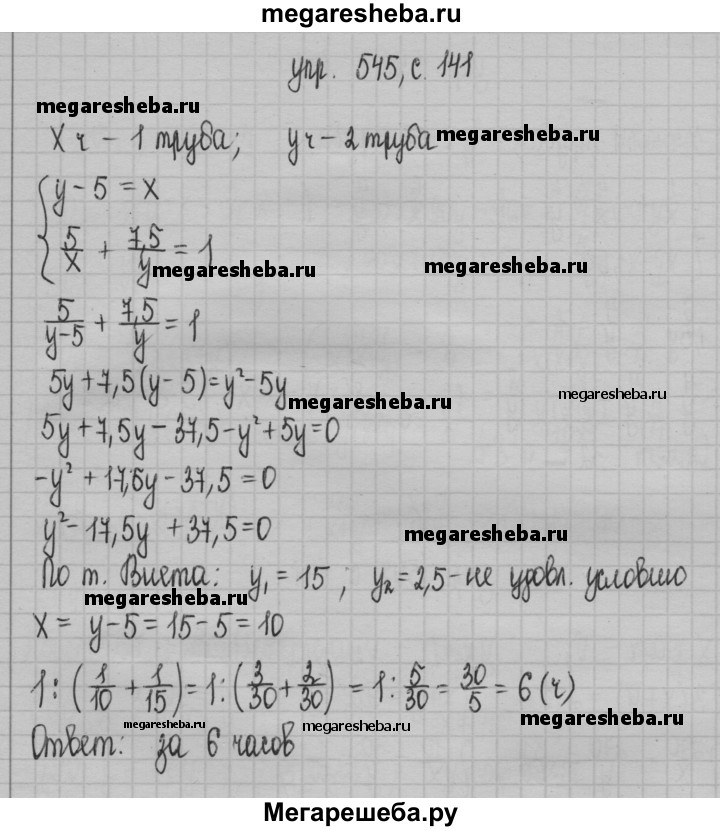 megaresheba.ru
упр. 545, с. 141
megaresheba.ru
x ч – 1 труба; y ч – 2 труба megaresheba.ru
{ y - 5 = x
5/x + 7,5/y = 1
megaresheba.ru megaresheba.ru
5/(y-5) + 7,5/y = 1
5y + 7,5(y - 5) = y² - 5y
megaresheba.ru megaresheba.ru
5y + 7,5y - 37,5 - y² + 5y = 0
-y² + 17,5y - 37,5 = 0
y² - 17,5y + 37,5 = 0
megaresheba.ru
По т. Виета: y₁ = 15; y₂ = 2,5 - не удовл. условию
megaresheba.ru
x = y - 5 = 15 - 5 = 10
1 : (1/10 + 1/15) = 1 : (3/30 + 2/30) = 1 : 5/30 = 30/5 = 6 (ч)
megaresheba.ru megaresheba.ru megaresheba.ru
Ответ: за 6 часов
Мегарешеба.ру